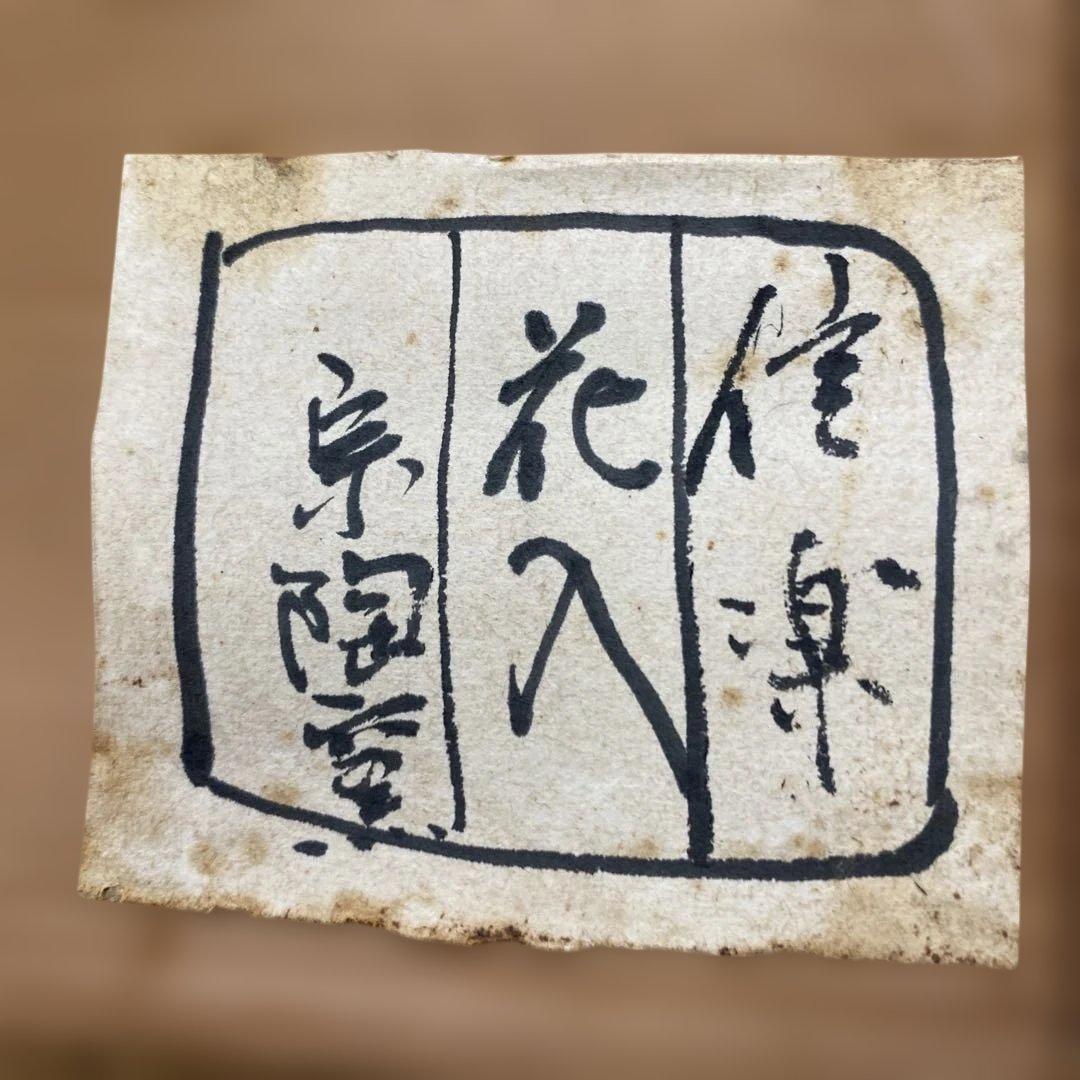 信楽
花入
宗陶薫